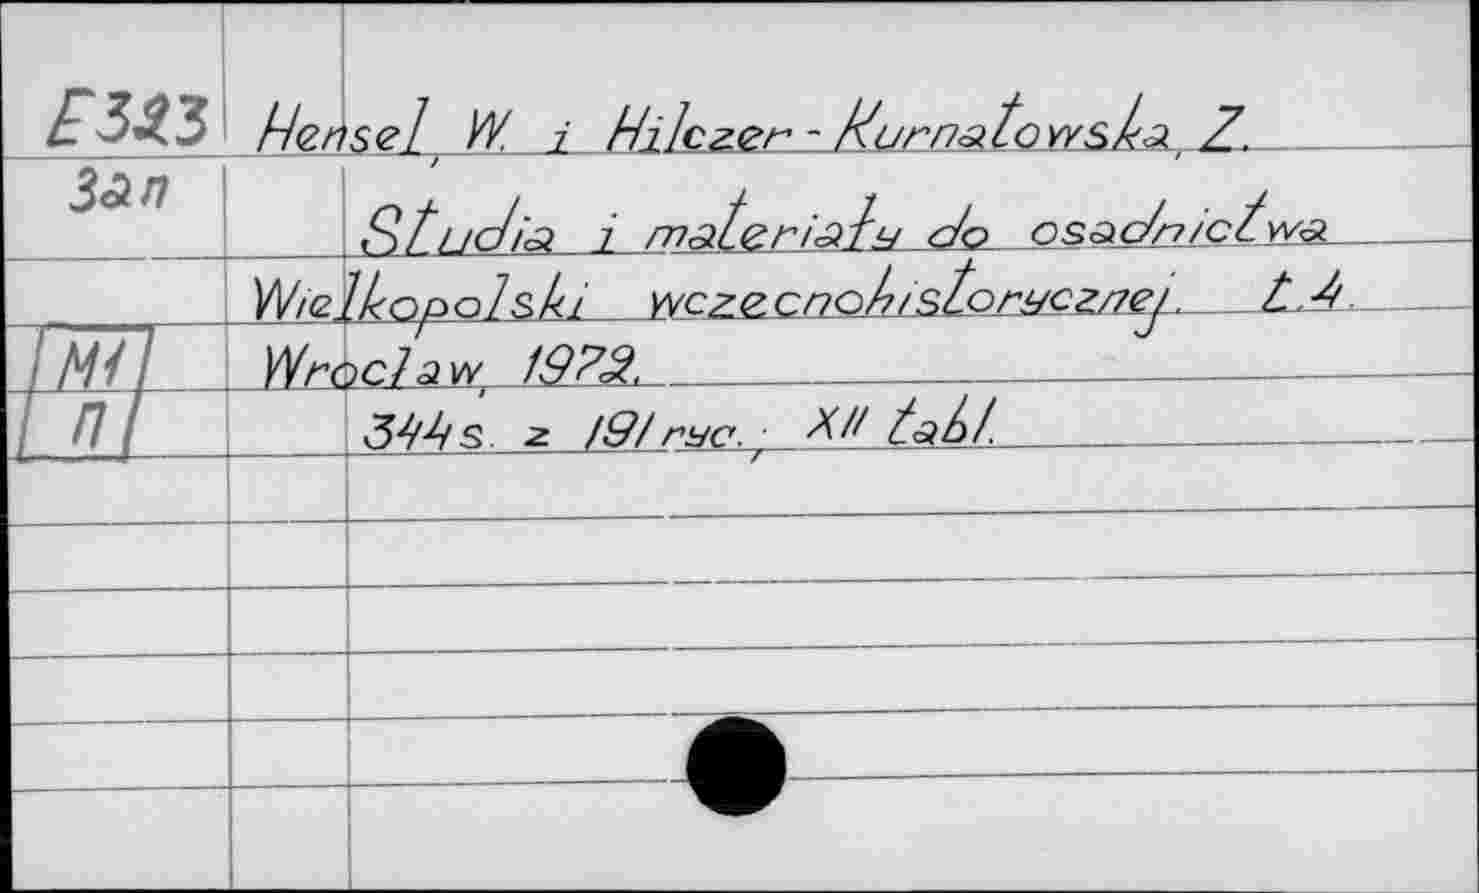 E323 Hensel, W. i Hilczer-Kurnatowska, Z.
Зал Studia i materiały do osadnictwa
Wielkopolski wczecnohistorycznej. t.4.
М1 Wrocław, 1972.
П 344s. z 191 ryc.; XII tabl.